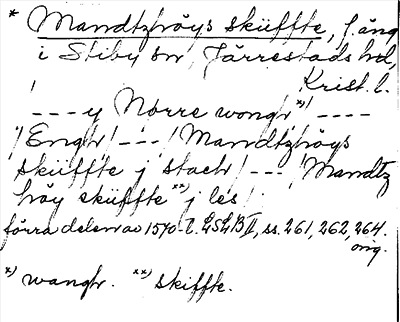 * Mandtzhöys skűffte, f. äng
i Stiby sn, Järrestads hd,
Krist. l.
/ --- y Nörre wongr *)/ ----
/Engr/ --- /Mandtzhöys
skűffte j stackr/ --- /Mandtz
höy skűffte **) j les/
förra delen av 1570-t. LSLB II, ss. 261, 262, 264.
orig.
*) wangr. **) skiffte.